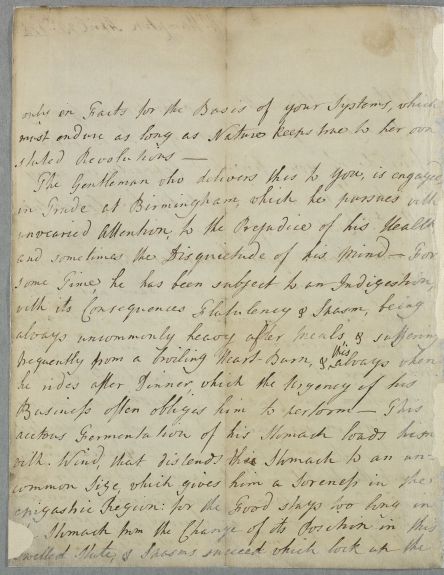 only on Facts for the Basis of your Systems, which
must endure as long as Nature keeps true to her own
stated Revolutions —
The Gentleman who delivers this to you, is engaged
in Trade at Birmingham, which he pursues with
unwearied Attention, to the Prejudice of his Health
and sometimes the Disquietude of his Mind — For
some Time, he has been subject to an Indigestion,
with its Consequences Flatulency & Spasm, being
always uncommonly heavy after Meals, & suffering
frequently from a broiling Heart-Burn, & this always when
he rides after Dinner, which the Urgency of his
Business often obliges him to perform — This
acetous Fermentation of his Stomach loads him
with Wind, that distends the Stomach to an un-
common Size, which gives him a Soreness in the
epigastric Region: for the Food stays too long in
Stomach from the Change of its Position in this
swelled State, & Spasms succeed which lock up the